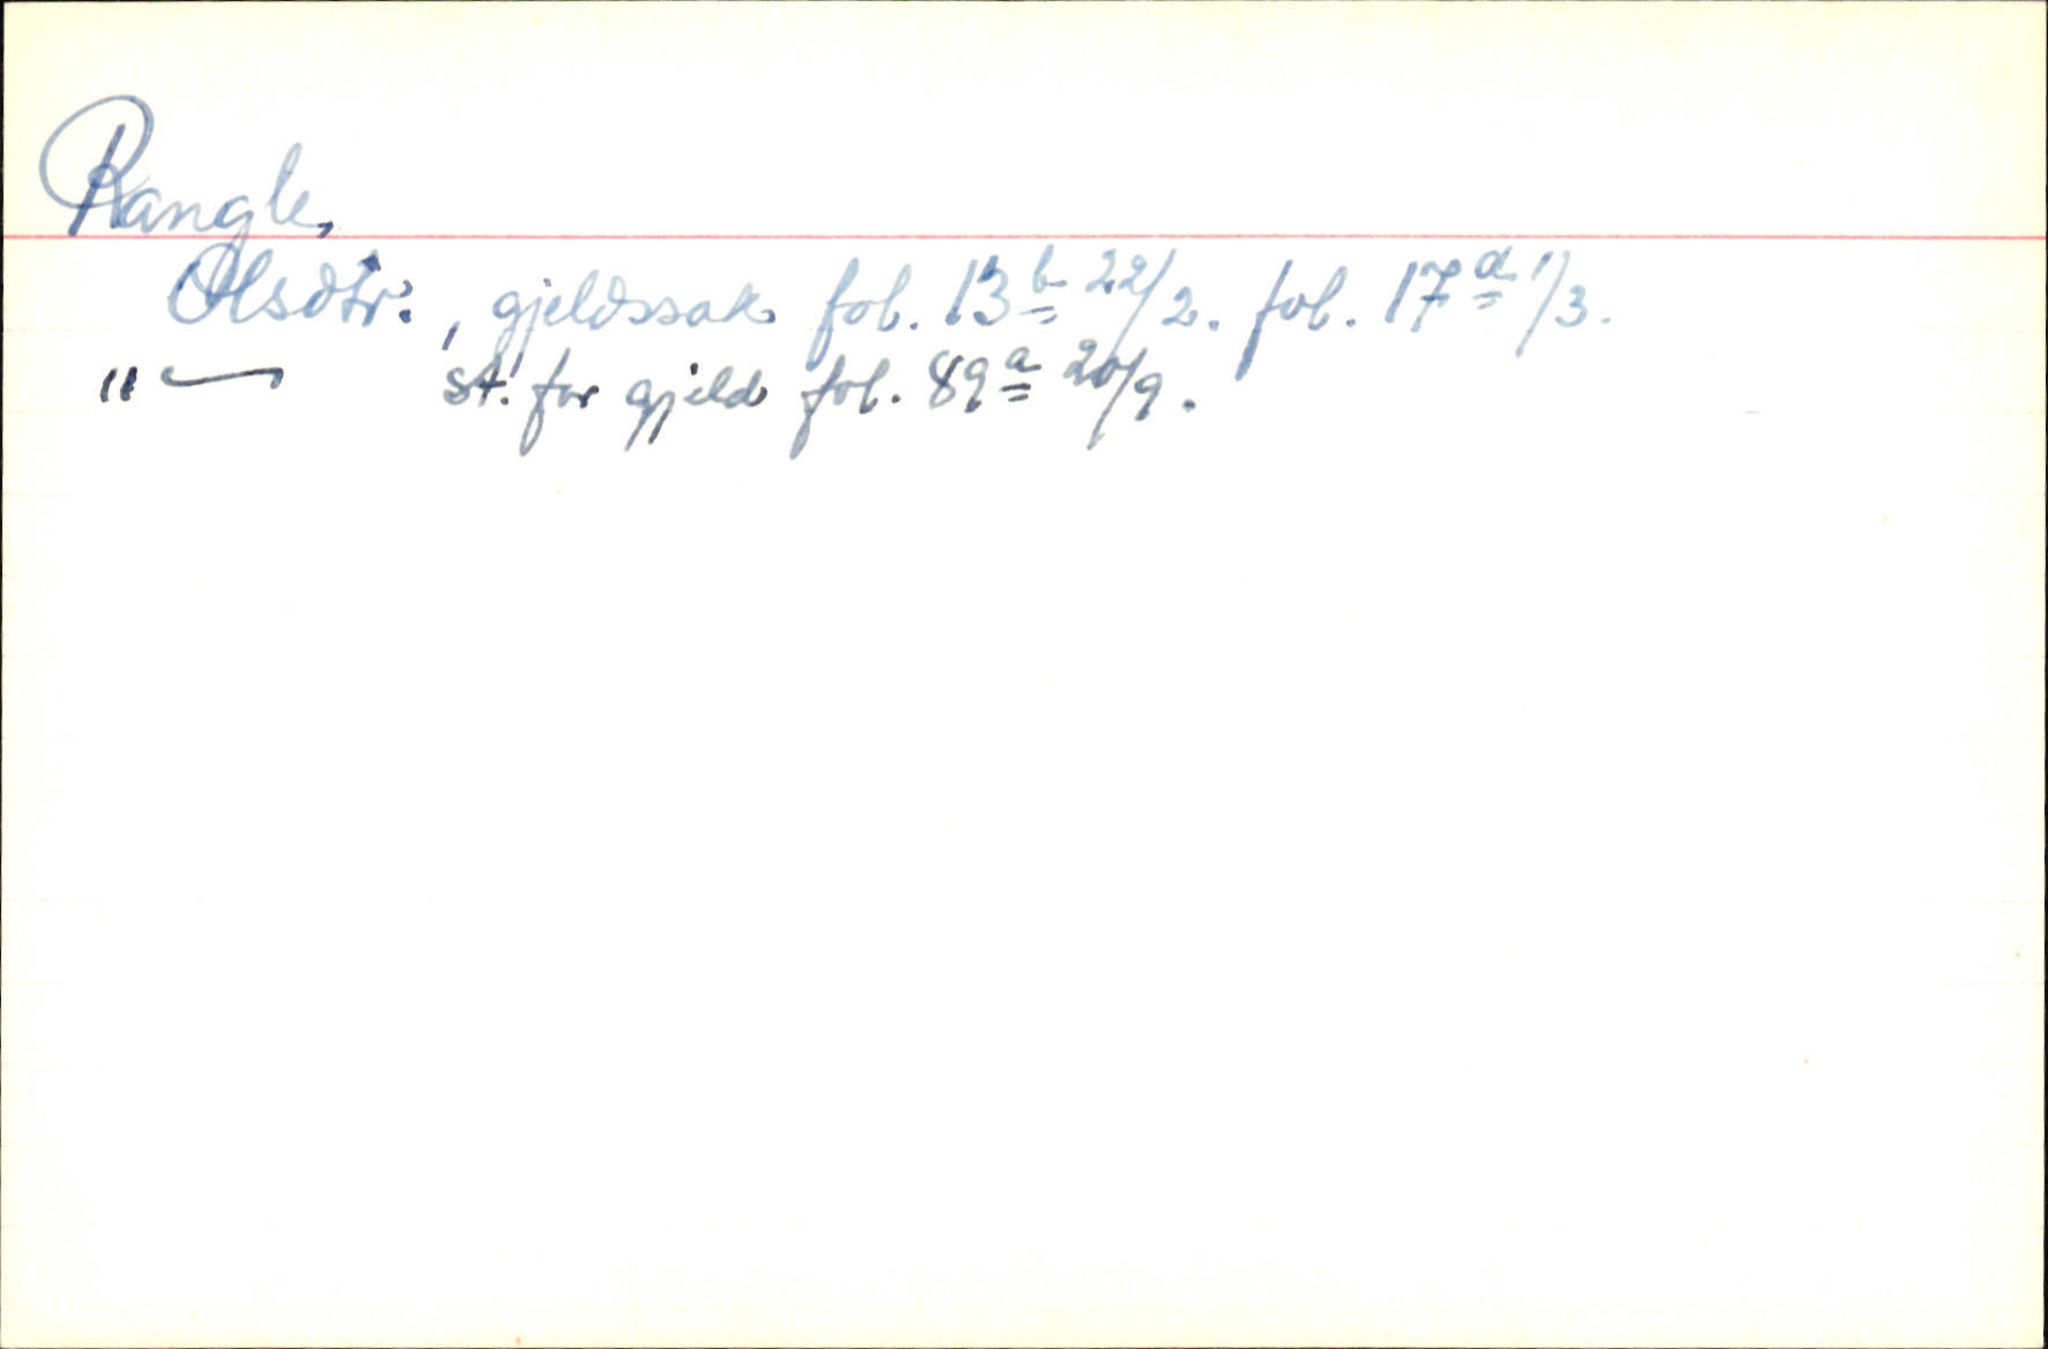 Rangle,
Olsdtr., gjeldssak fol. 13b 22/2. fol. 17a 1/3.
"— st. for gjeld fol. 89a 20/9.